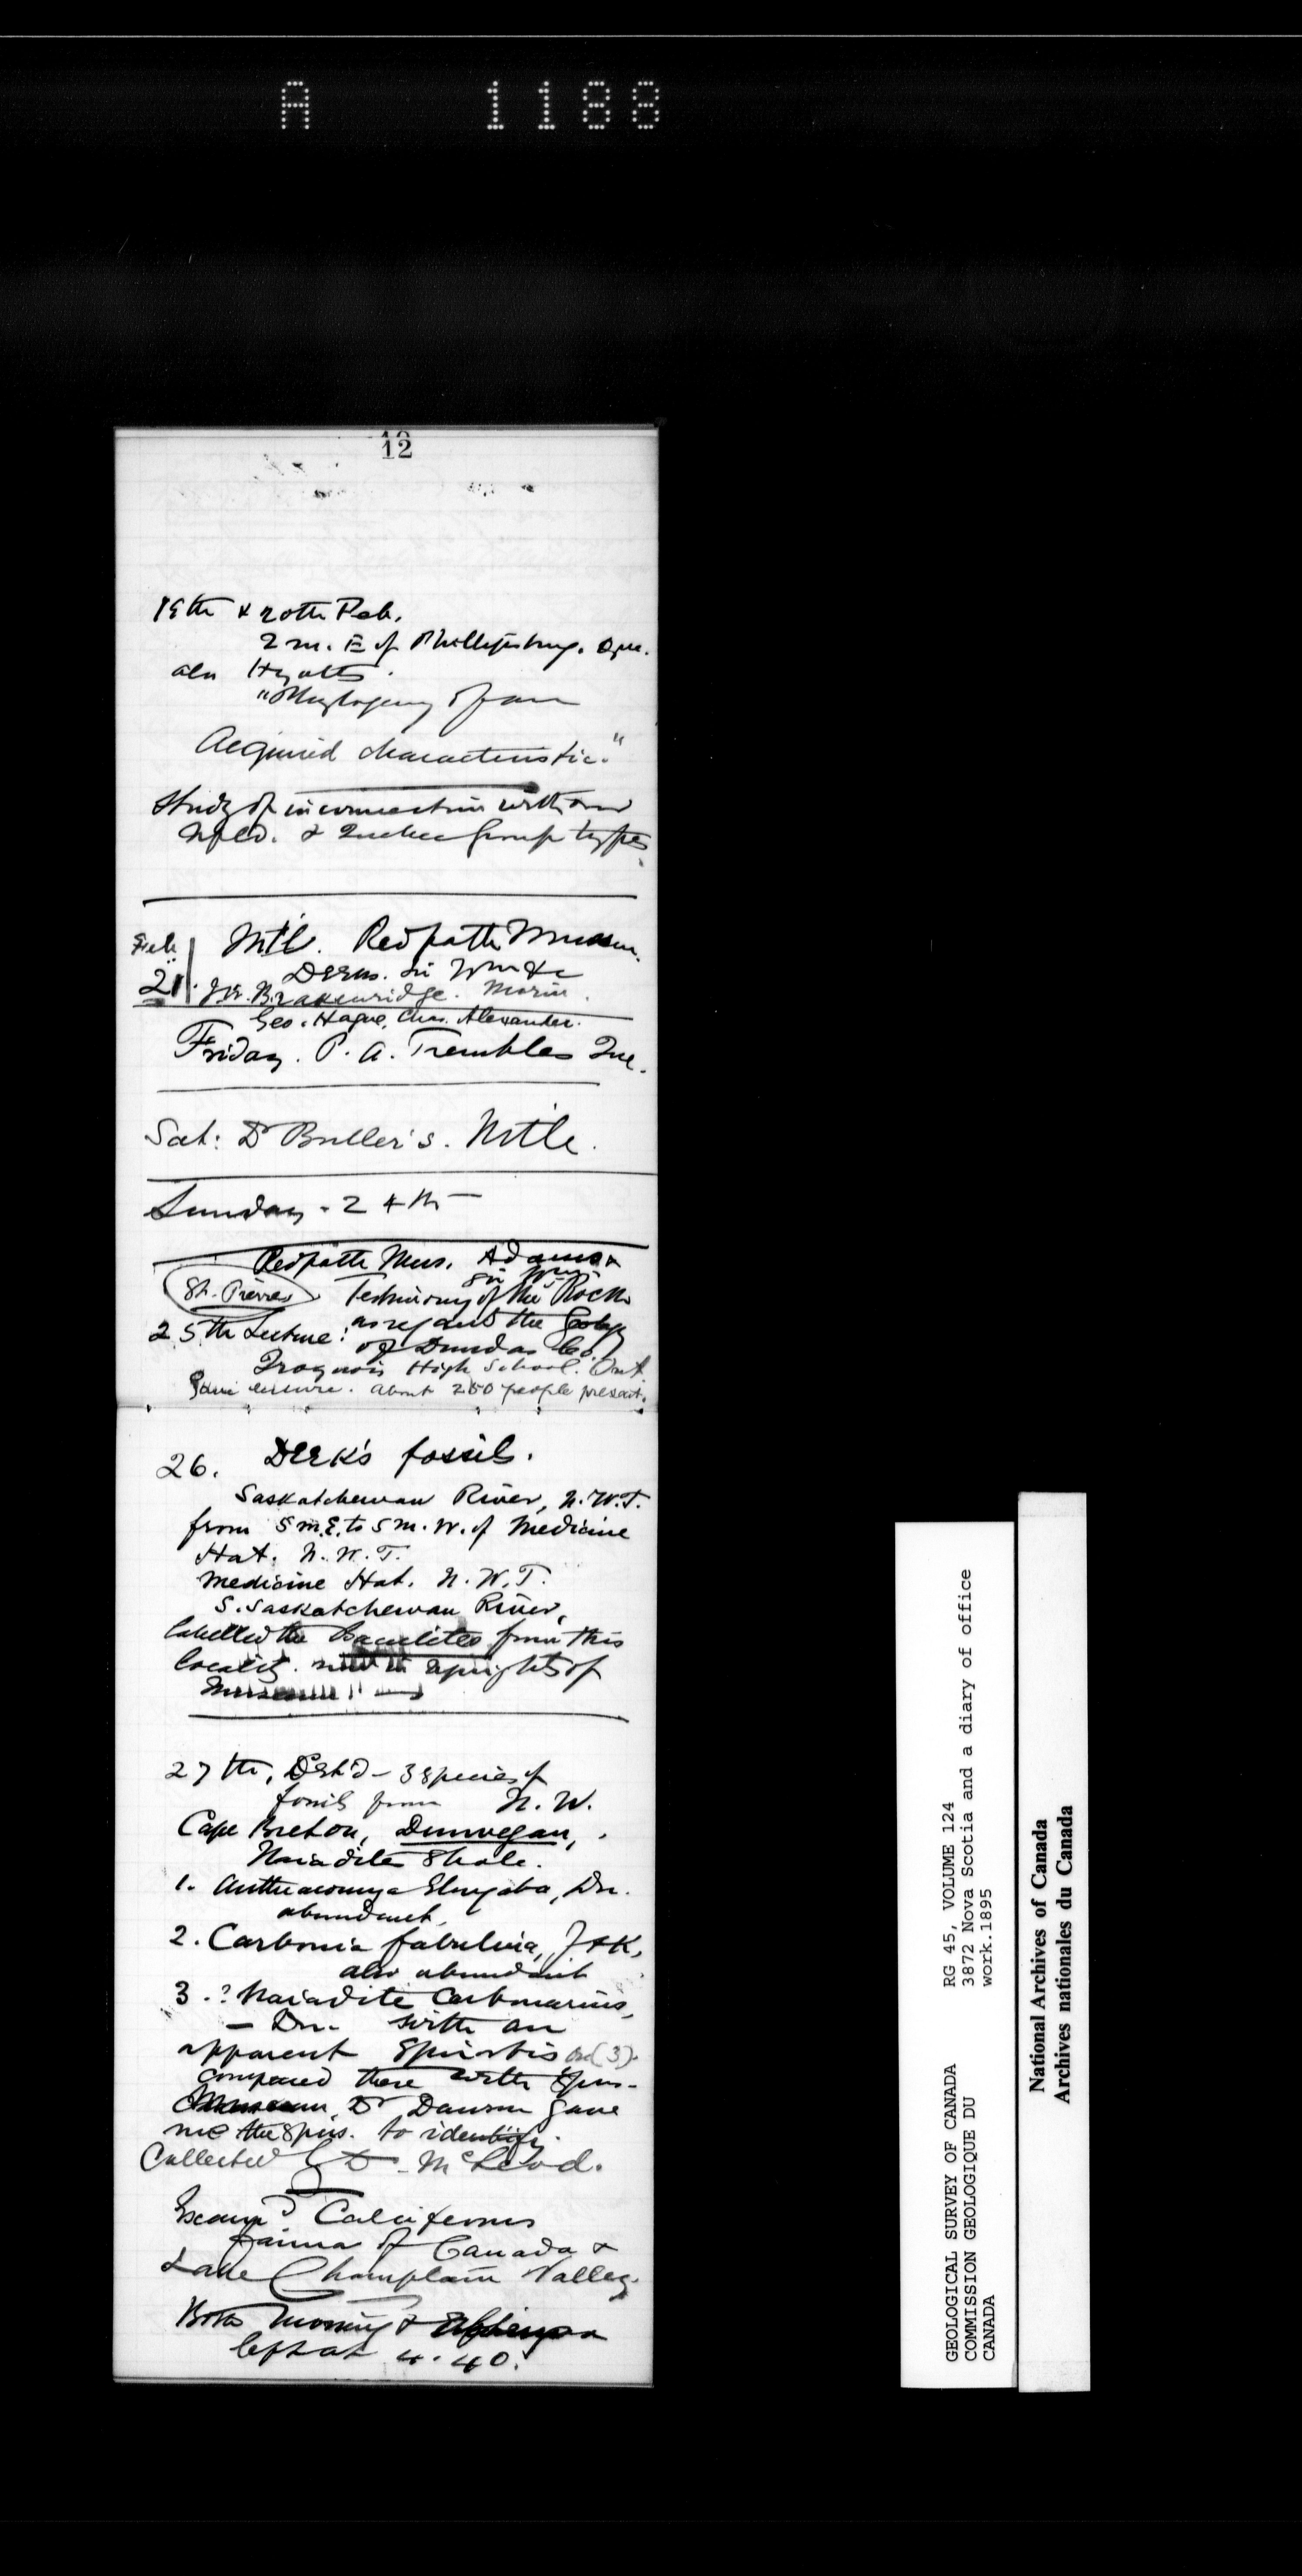 A 1188
12
19th & 20th Feb.
2 m. E of Phillipsburg. Que.
also Hyatt's
"Phylogeny of an
Acquired characteristic."
Study of in connection with our
Nfld. & Quebec Group types
Feb
21. Mtl. Redpath Museum.
Sir Wm &c
Brakenridge. Morin.
Geo. Hague, Chas. Alexander.
Friday. P. A. Trembles Que.
Sat: Dr Buller's. Mtle.
Sunday. 24th
Redpath Mus. Adams &
Sir Wm.
St. Pierres Testimony of the Rocks
25th Lecture: as regards the Geology
of Dundas Co.
Iroquois High School. Ont.
about 250 people present.
26. fossils.
Saskatchewan River, N.W.T.
from 5 m. E. to 5 m. W. of Medicine
Hat. N. W. T.
Medicine Hat. N. W. T.
S. Saskatchewan River,
labelled the Baculites from this
locality. uprights of
Museum
27th, Det'd - 3 species of
fossils from N. W.
Cape Breton, Dunvegan,
Naiadites Shale.
1. Anthracomya Elongata, Dn.
abundant,
2. Carbonia fabulina, J & K,
also abundant
3. ? Naiadites Carbonarius,
- Dn. with an
apparent Spirorbis on (3).
compared these with Spns.
Museum, Dr Dawson gave
me the spns. to identify.
Collected by McLeod.
Exam'd Calciferous
fauna of Canada &
Lake Champlain Valley.
Both Morning &
left at 4.40.
GEOLOGICAL SURVEY OF CANADA
COMMISSION GEOLOGIQUE DU
CANADA
RG 45, VOLUME 124
3872 Nova Scotia and a diary of office
work.1895
National Archives of Canada
Archives nationales du Canada